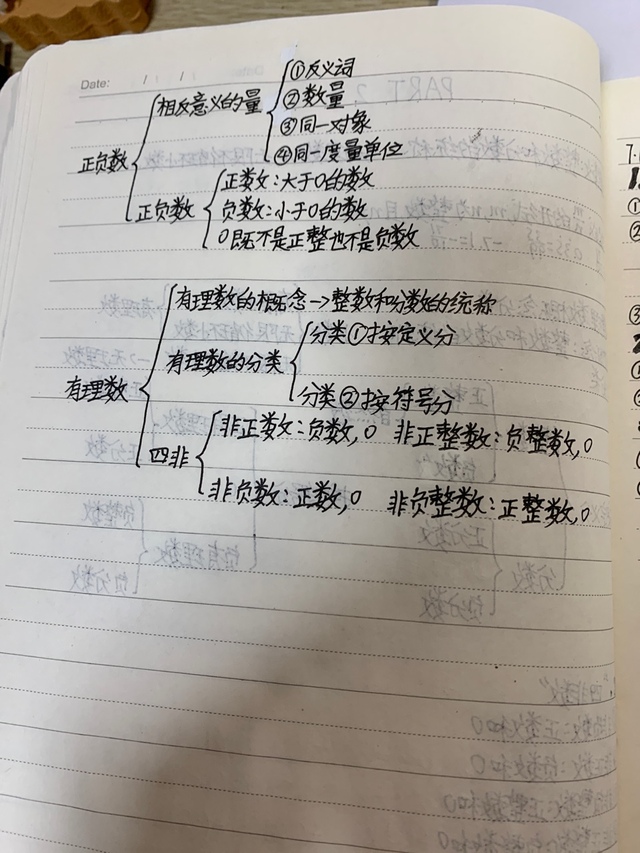 Date:
①反义词
相反意义的量 ②数量
③同一对象
正负数 ④同一度量单位
正数:大于0的数
正负数 负数:小于0的数
0既不是正整也不是负数
有理数的概念→整数和分数的统称
分类①按定义分
有理数的分类
有理数 分类②按符号分
非正数:负数,0 非正整数:负整数,0
四非
非负数:正数,0 非负整数:正整数,0